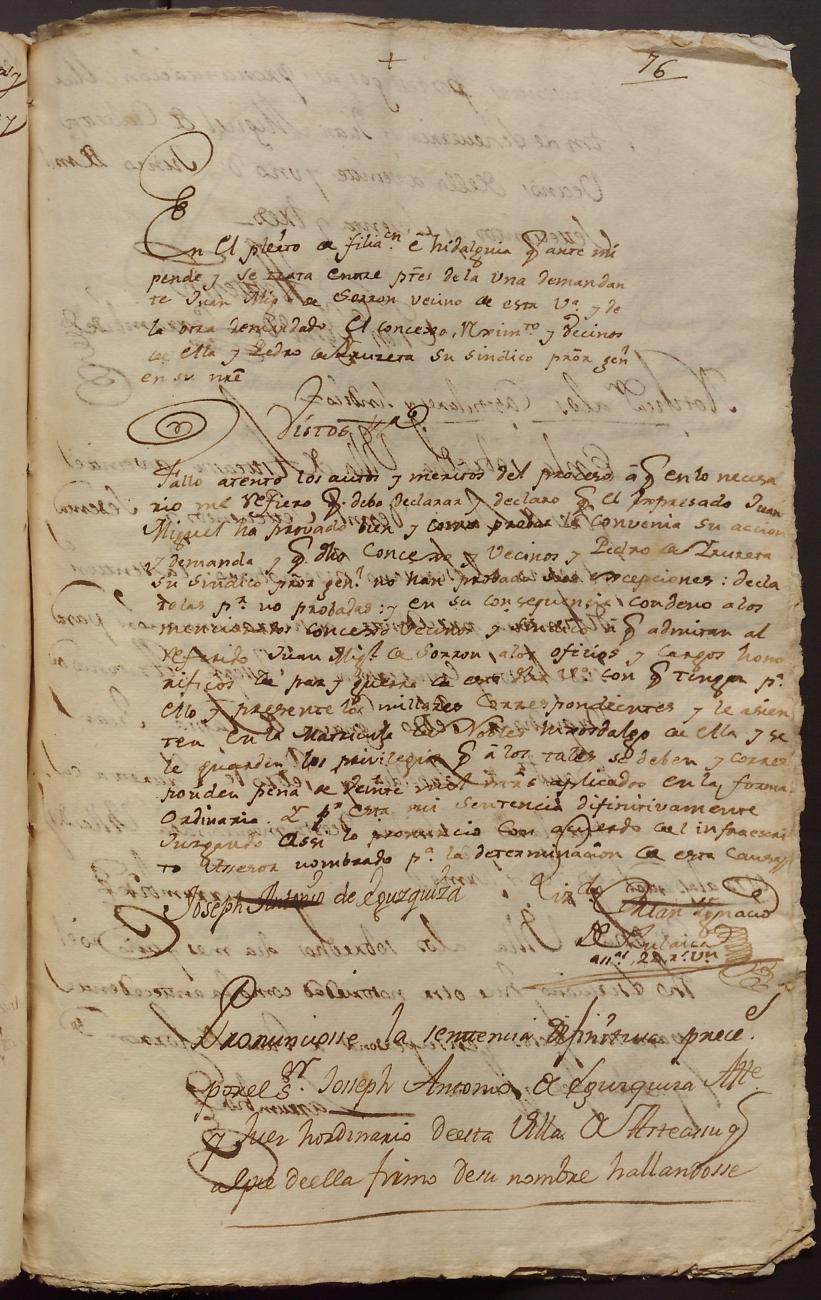 +
76
En el pleito de filia.cn e hidalguia q ante mi
pende y se trata entre ptes de la una demandan
te Juan Migl de Sorron vecino de esta Va y de
la otra demandado El concexo, y vecinos
de ella y Pedro de Yrureta su sindico pror genl
en su nre
Vistos &a.
Fallo atento los autos y meritos del proceso â q en lo necesa
rio me refiero q. debo declarar y declaro q. el expresado Juan
Miguel ha provado bien y como probar le convenia su accion
y demanda y q dho Concexo y Vecinos y Pedro de Yrureta
su sindico pror genl no han probado sus excepciones: decla
rolas pr no probadas: y en su consequencia condeno a los
mencionados concexo vecinos y sindico â q admitan al
referido Juan Migl de Sorron a los oficios y cargos hono
rificos de paz y guerra de esta Va con q tenga pa
ello y presente los millares correspondientes y le asien
ten en la Matricula de Nobles hixosdalgo de ella y se
le guarden los privilegios q â los tales se deben y corres
ponden pena de veinte mil mrs aplicados en la forma
ordinaria. Y pr esta mi sentencia difinitivamente
Juzgando assi lo pronuncio con acuerdo del infraescri
to Asesor nombrado pa la determinacion de esta causa
Joseph Antonio de Eguzquiza
Ignacio
Pronunciosse la sentencia difinitiva prece.
por el Sor. Josseph Antonio de Eguzquiza Alle
y Juez hordinario de esta Villa de Asteasu q
al pie de ella firmo de su nombre hallandosse